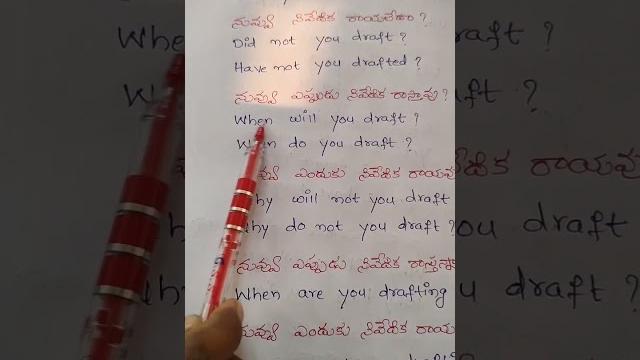 నువ్వు నివేదిక రాయలేదా?
Did not you draft?
Have not you drafted?
నువ్వు ఎప్పుడు నివేదిక రాస్తావు?
When will you draft?
When do you draft?
నువ్వు ఎందుకు నివేదిక రాయవు
Why will not you draft
Why do not you draft?
నువ్వు ఎప్పుడు నివేదిక రాస్తున్నా
When are you drafting
నువ్వు ఎందుకు నివేదిక రాయ